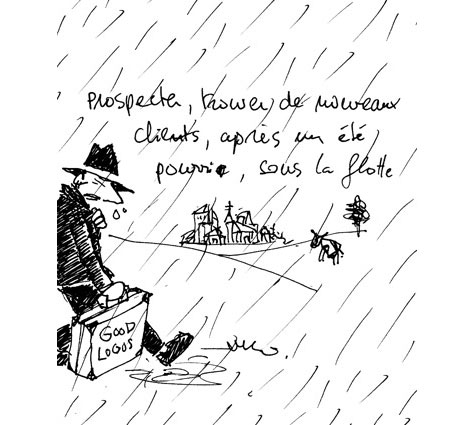 prospecter, trouver de nouveaux
clients, après un été
pourri, sous la flotte
GOOD
LOGOS